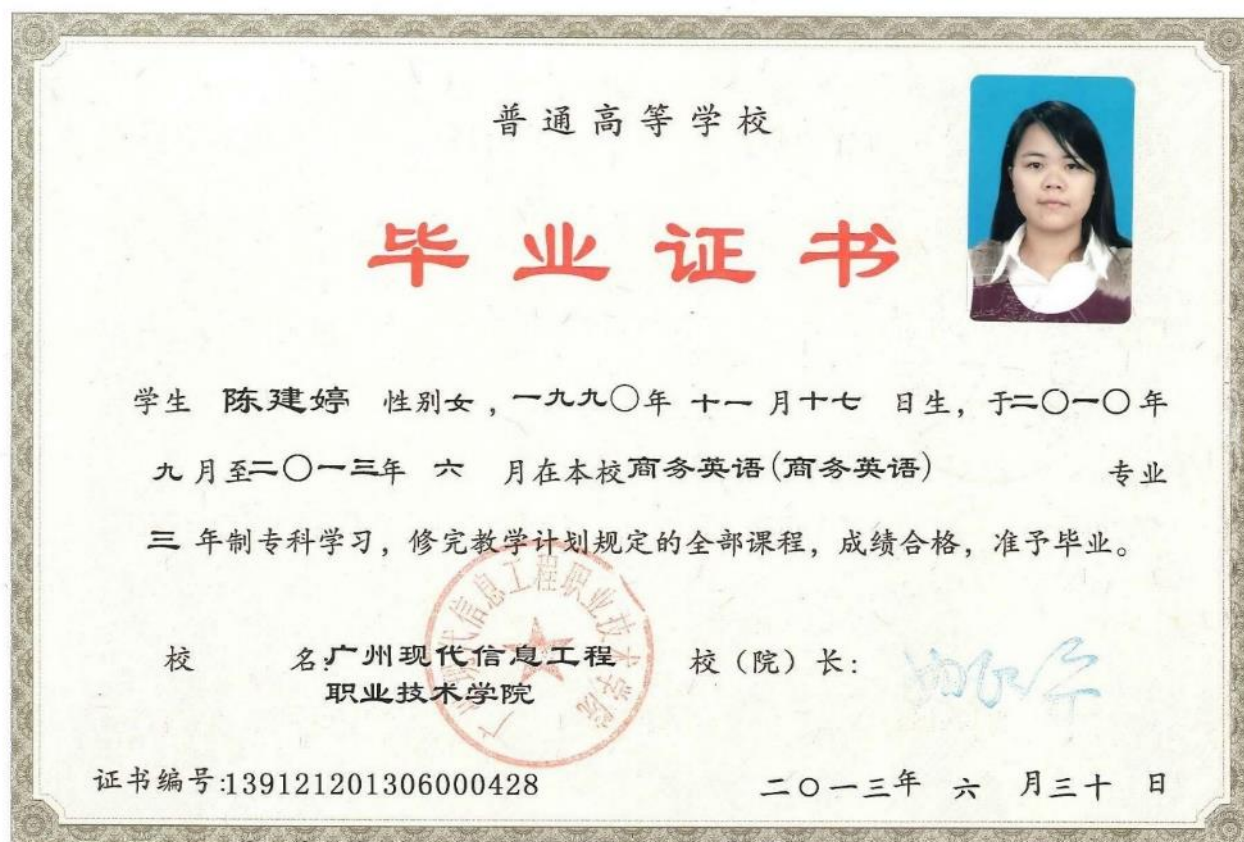 普通高等学校
毕业证书
学生 陈建婷 性别女,一九九〇年 十一 月十七 日生,于二〇一〇年
九月至二〇一三年 六 月在本校商务英语(商务英语) 专业
三 年制专科学习,修完教学计划规定的全部课程,成绩合格,准予毕业。
校 名:广州现代信息工程
职业技术学院
校(院)长:
广州现代信息工程职业技术学院
证书编号:139121201306000428
二〇一三年 六 月三十 日